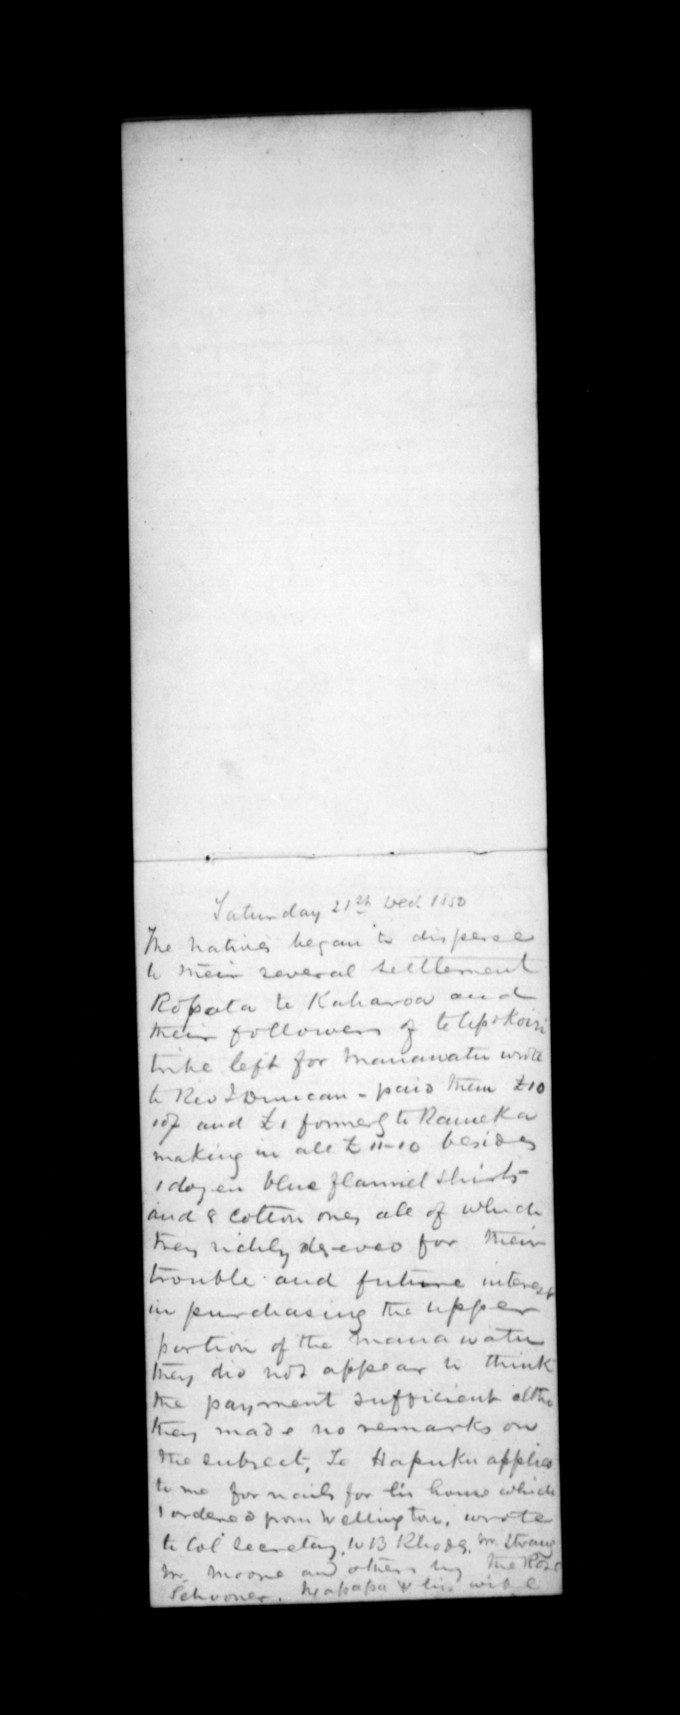 Saturday 21st Decr 1850
The natives began to disperse
to their several settlement
Ropata te Kaharoa and
their followers of te
tribe left for Manawatu wrote
to Rev J Duncan - paid them £10
and £1 formerly to Rameka
making in all £11-10 besides
1 dozen blue flannel shirts
and 8 cotton ones all of which
they richly deserved for their
trouble and future interest
in purchasing the upper
portion of the Manawatu
they did not appear to think
the payment sufficient altho
they made no remarks on
the subject, Te Hapuku applied
to me for nails for his house which
I ordered from Wellington. wrote
to Col Secretary, W B Rhodes, Mr Strang
Mr Moore and others by the Rose
Schooner. & his wife